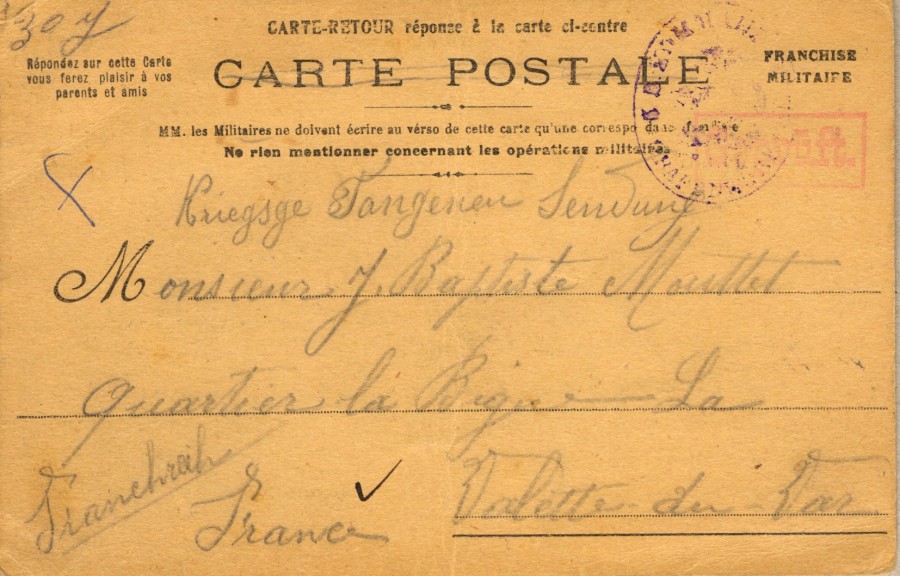 307
CARTE-RETOUR réponse à la carte ci-contre
Répondez sur cette Carte
vous ferez plaisir à vos
parents et amis
CARTE POSTALE
FRANCHISE
MILITAIRE
MM. les Militaires ne doivent écrire au verso de cette carte qu'une correspo dance familiale
Ne rien mentionner concernant les opérations militaires
Kriegsge Fangenen Sendung
Monsieur J. Baptiste Mouttet
quartier la Bigue La
Valette-du-Var
Franchreih
France